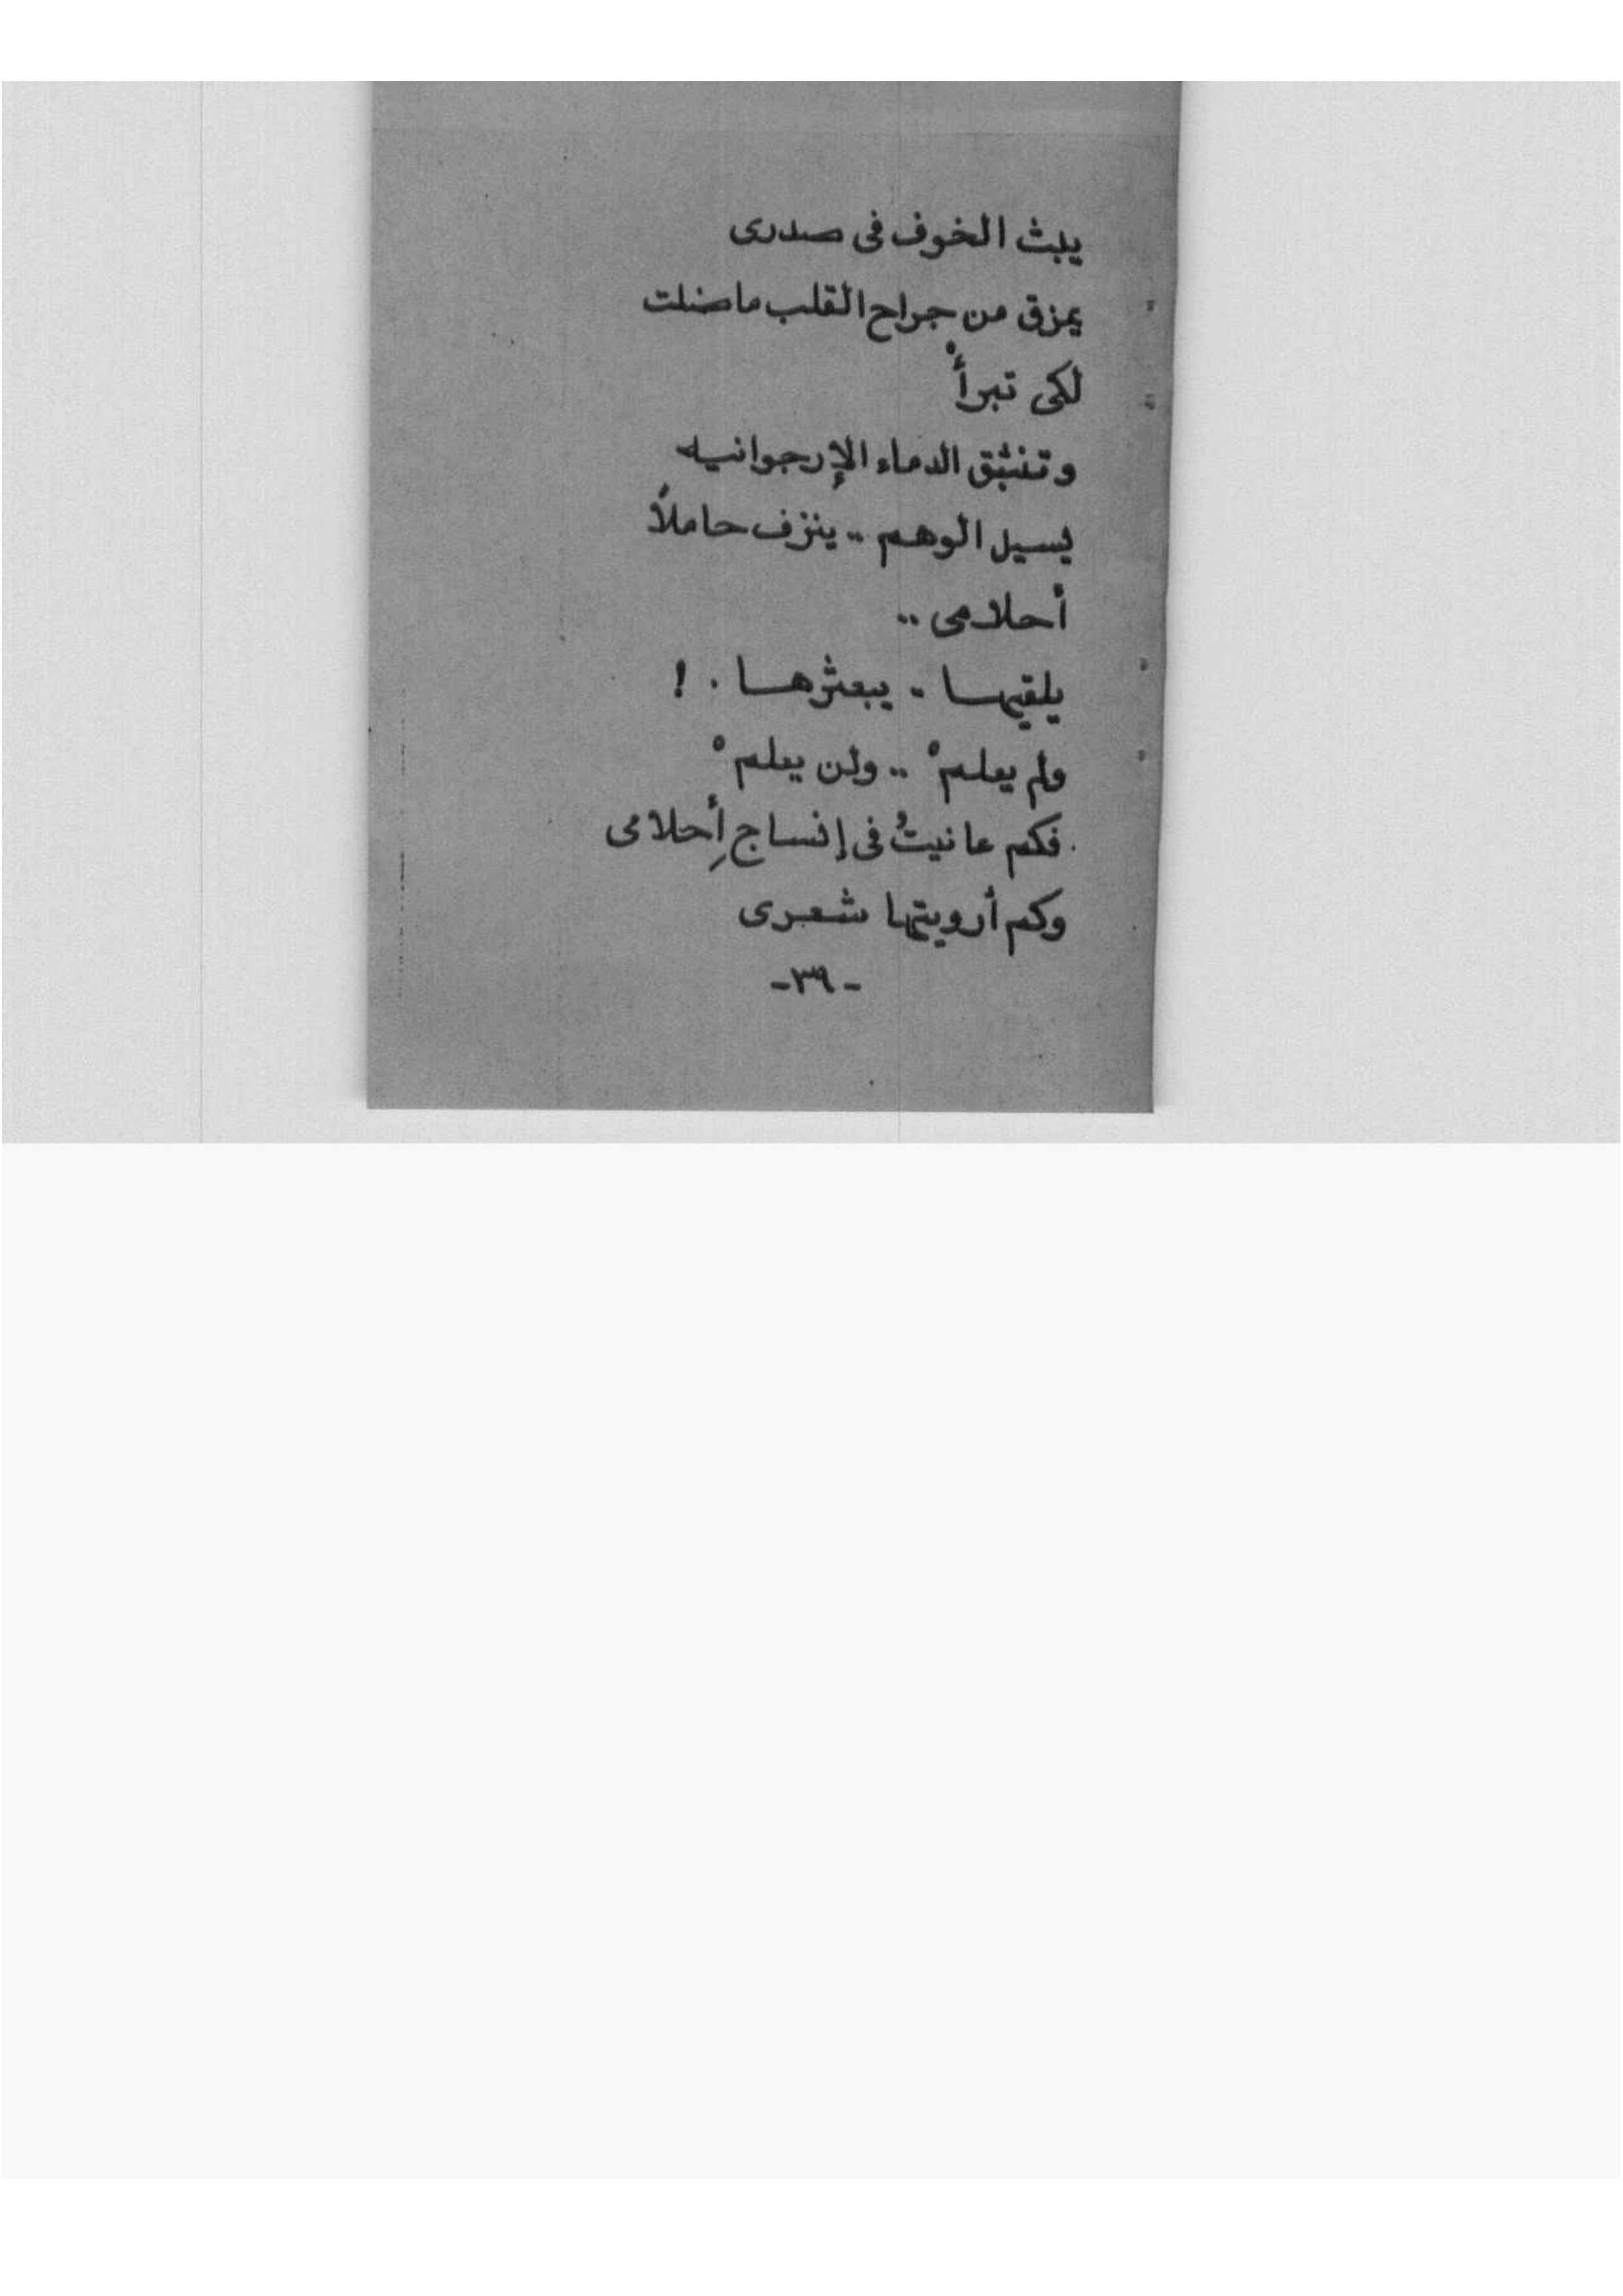 يبث الخوف فى صدرى
يمزق من جراح القلب ماضلت
لكى تبرأْ
وتنبثق الدماء الإرجوانيه
يسيل الوهم .. ينزف حاملاً
أحلامى ..
يلقيها . يبعثرها . !
ولم يعلمْ .. ولن يعلمْ
فكم عانيتُ فى إنساجِ أحلامى
وكم أرويتها شعرى
-٣٩-